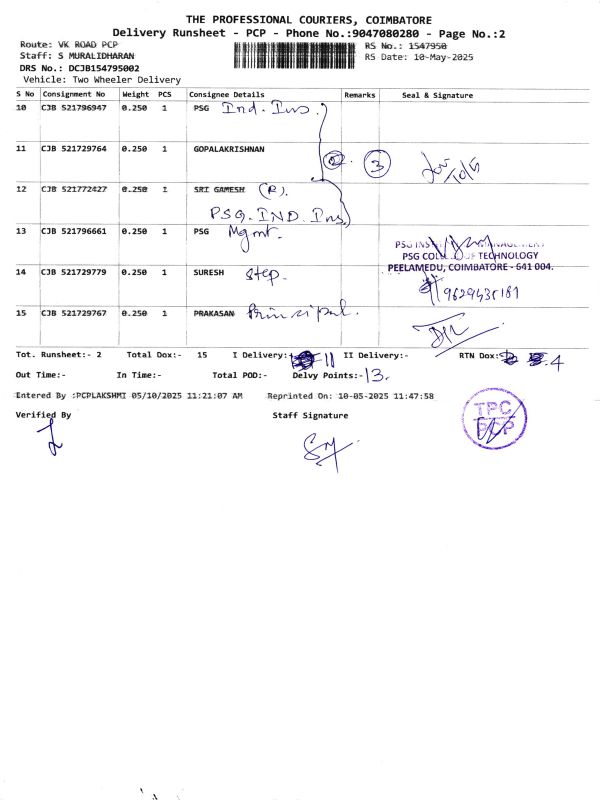 THE PROFESSIONAL COURIERS, COIMBATORE
Delivery Runsheet - PCP - Phone No.:9047080280 - Page No.:2
Route: VK ROAD PCP RS No.: 1547950
Staff: S MURALIDHARAN RS Date: 10-May-2025
DRS No.: DCJB154795002
Vehicle: Two Wheeler Delivery
S No Consignment No Weight PCS Consignee Details Remarks Seal & Signature
10 CJB 521796947 0.250 1 PSG Ind. Ins.
11 CJB 521729764 0.250 1 GOPALAKRISHNAN
3
12 CJB 521772427 0.250 1 SRI GAMESH (R).
PSG. IND. Ins
13 CJB 521796661 0.250 1 PSG Mgmt.
PSG COLLEGE OF TECHNOLOGY
PEELAMEDU, COIMBATORE - 641 004.
14 CJB 521729779 0.250 1 SURESH step.
9629435181
15 CJB 521729767 0.250 1 PRAKASAN Principal.
Tot. Runsheet:- 2 Total Dox:- 15 I Delivery:- 11 II Delivery:- RTN Dox:- 4
Out Time:- In Time:- Total POD:- Delvy Points:- 13.
Entered By :PCPLAKSHMI 05/10/2025 11:21:07 AM Reprinted On: 10-05-2025 11:47:58
Verified By Staff Signature
TPC
PCP